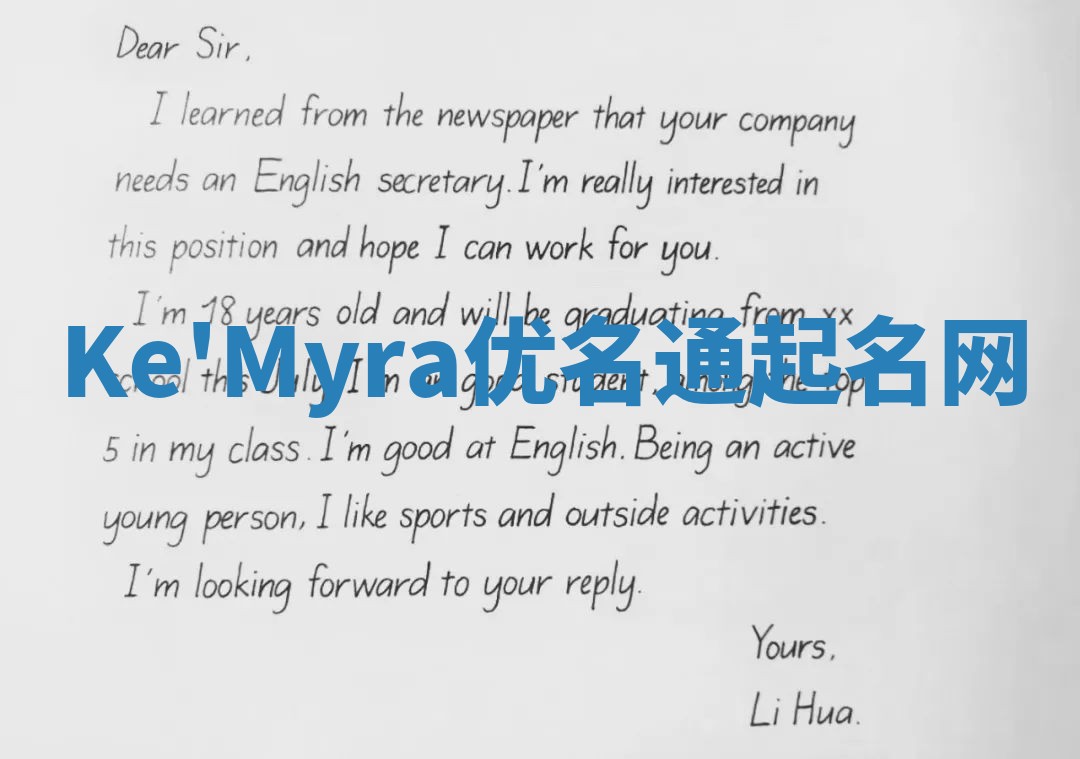 Dear Sir,
I learned from the newspaper that your company
needs an English secretary. I'm really interested in
this position and hope I can work for you.
I'm 18 years old and will be graduating from xx
Ke'Myra优名通起名网
school this July. I'm a good student, among the top
5 in my class. I'm good at English. Being an active
young person, I like sports and outside activities.
I'm looking forward to your reply.
Yours,
Li Hua.